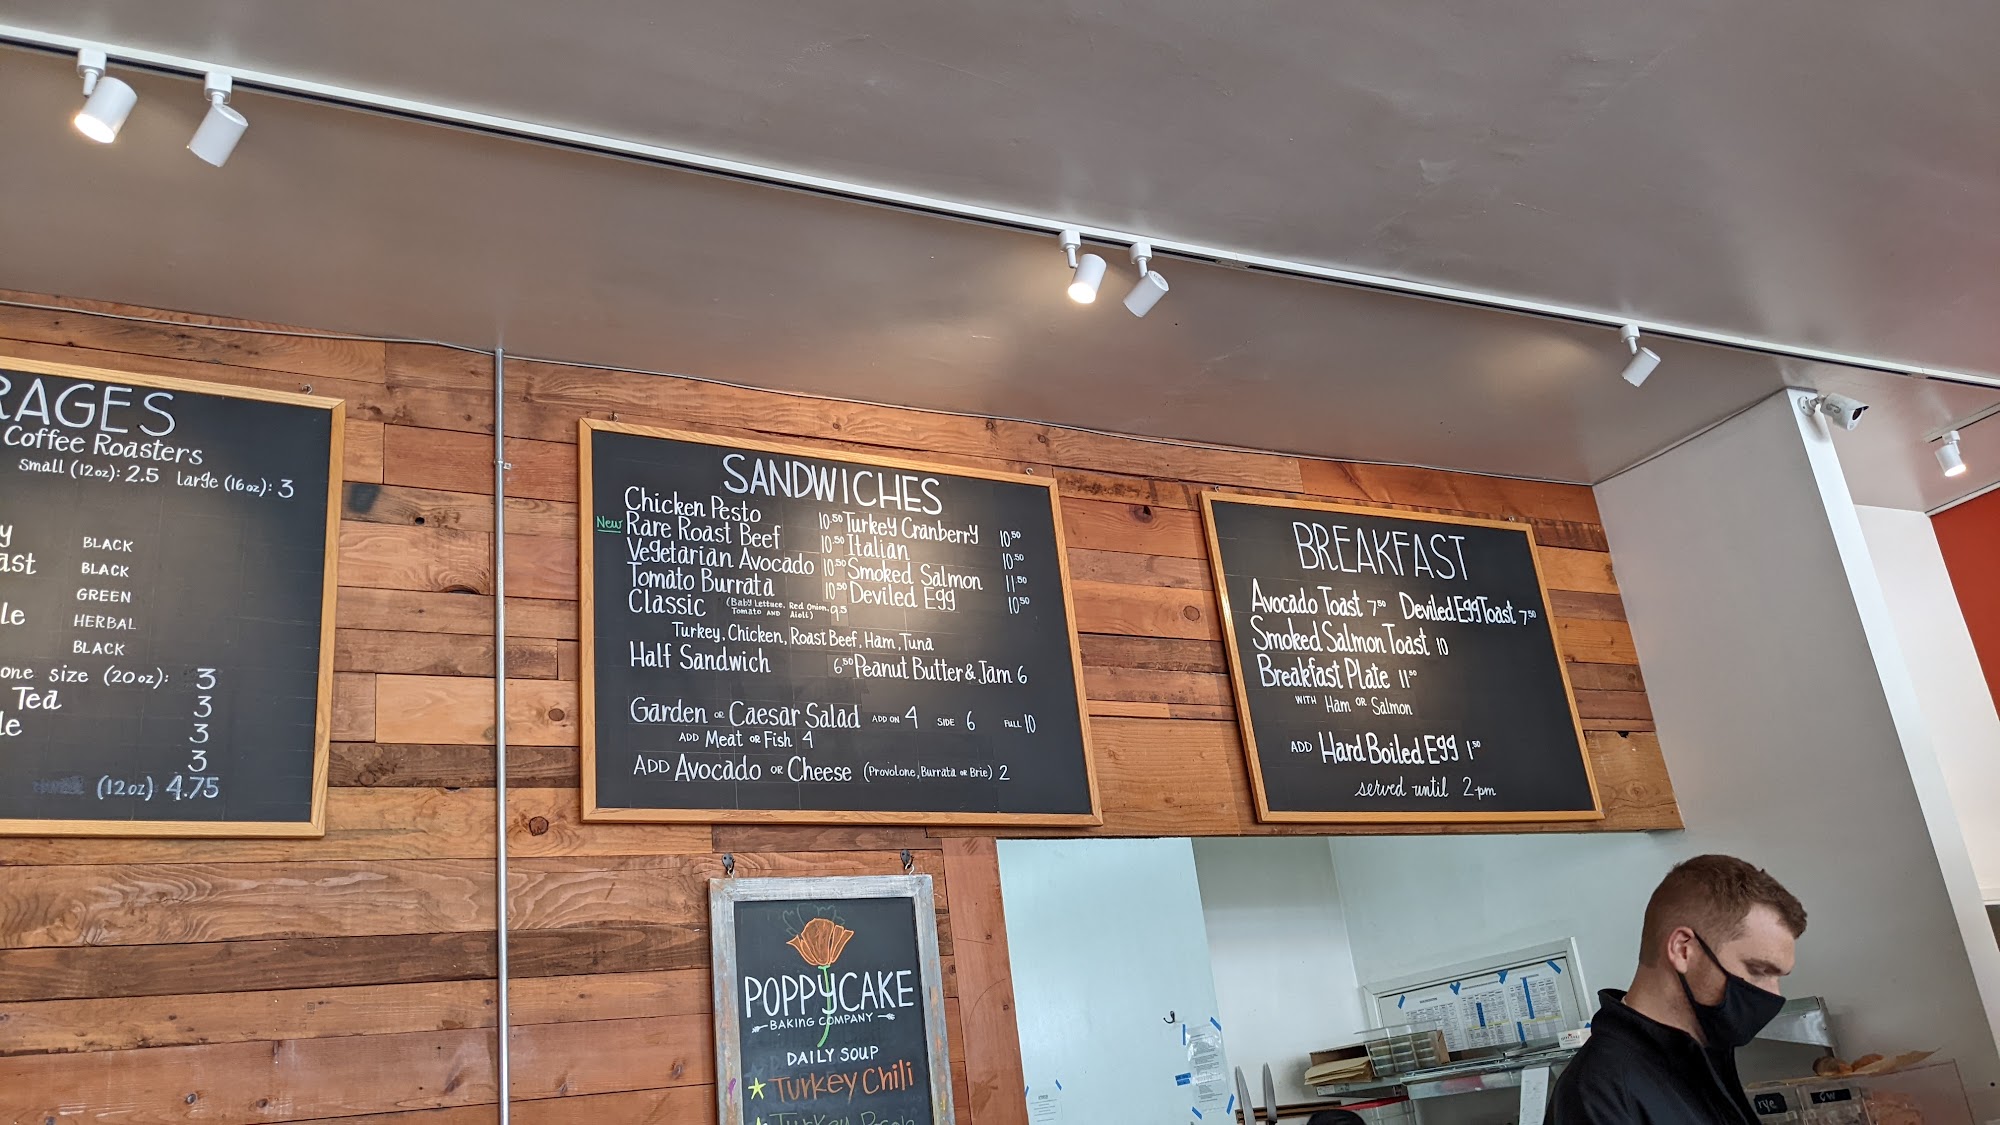 RAGES
Coffee Roasters
Small (12oz): 2.5 large (16oz): 3
y BLACK
ast BLACK
GREEN
le HERBAL
BLACK
one size (20oz): 3
Tea 3
le 3
3
(12oz) 4.75
SANDWICHES
Chicken Pesto 10.50 Turkey Cranberry 10.50
New Rare Roast Beef 10.50 Italian 10.50
Vegetarian Avocado 10.50 Smoked Salmon 11.50
Tomato Burrata 10.50 Deviled Egg 10.50
Classic (Baby Lettuce, Red Onion, Tomato AND Aioli) 9.5
Turkey, Chicken, Roast Beef, Ham, Tuna
Half Sandwich 6.50 Peanut Butter & Jam 6
Garden OR Caesar Salad ADD ON 4 SIDE 6 FULL 10
ADD Meat OR Fish 4
ADD Avocado OR Cheese (Provolone, Burrata OR Brie) 2
BREAKFAST
Avocado Toast 7.50 Deviled Egg Toast 7.50
Smoked Salmon Toast 10
Breakfast Plate 11.50
WITH Ham OR Salmon
ADD Hard Boiled Egg 1.50
served until 2pm
POPPYCAKE
BAKING COMPANY
DAILY SOUP
Turkey Chili
Turkey
rye
GW